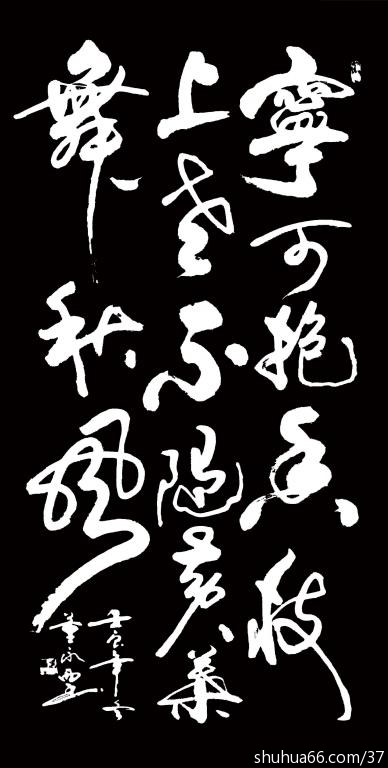 寧可抱香枝
上老不隨黃葉
舞秋風
shuhua66.com/37